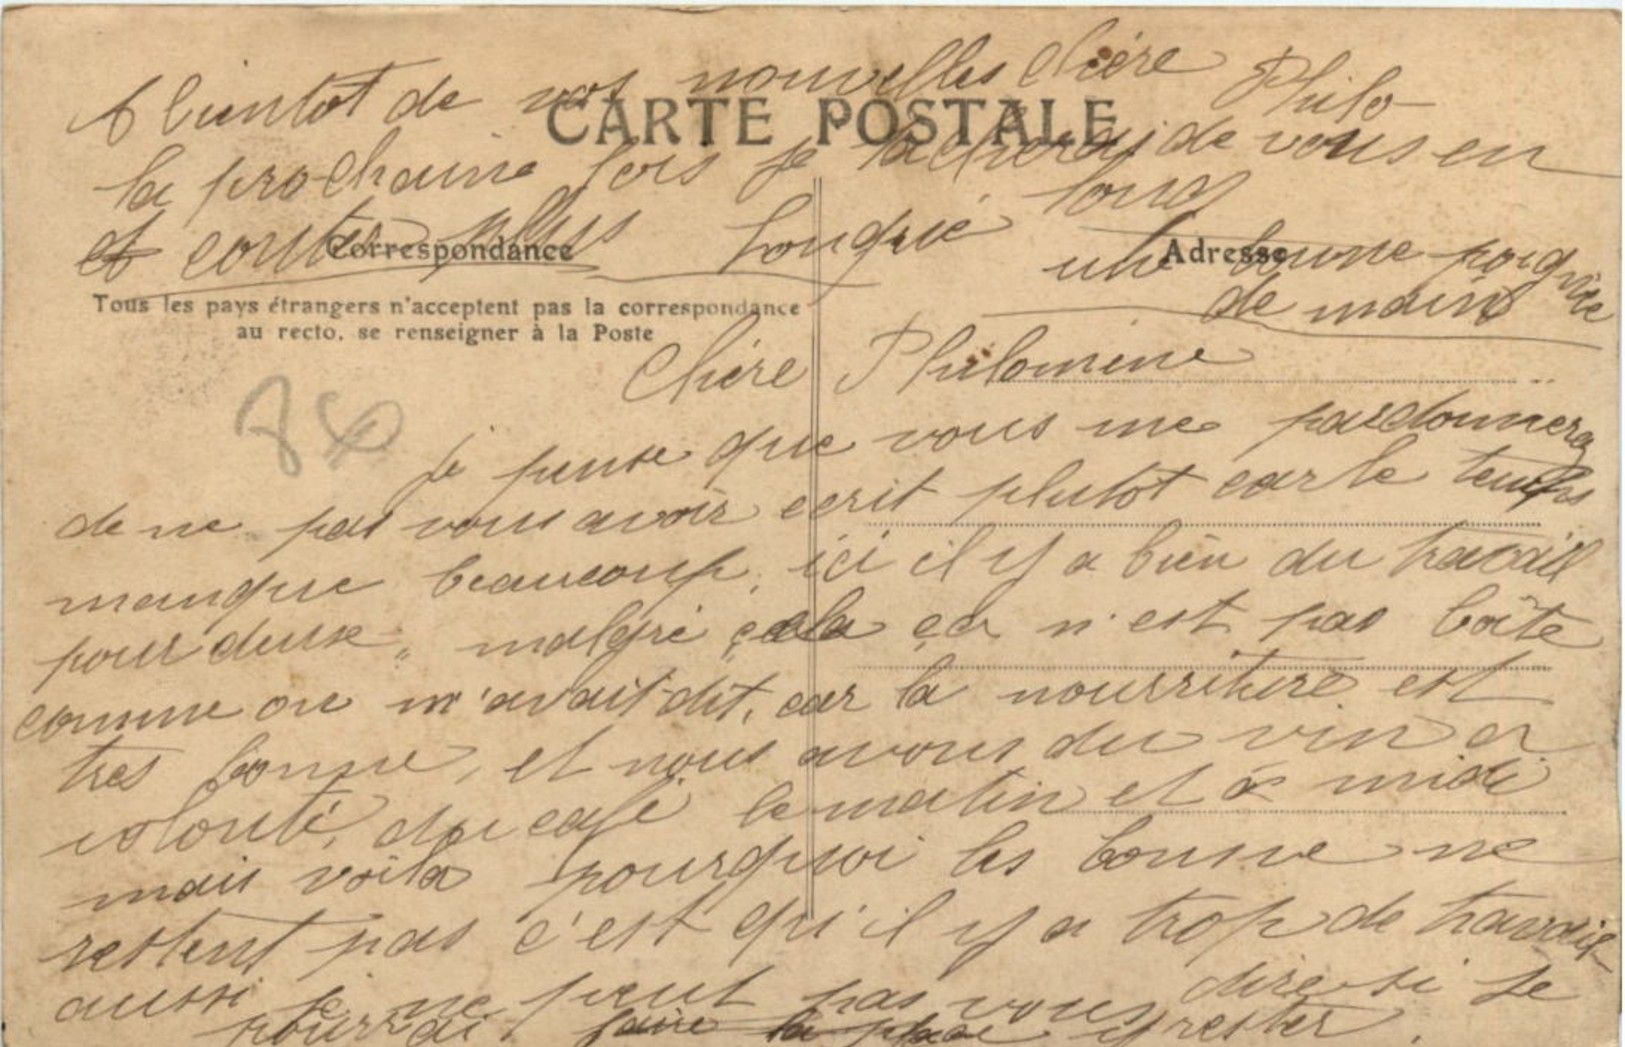 A bientot de vos nouvelles Chère Philo-
la prochaine fois je tacherai de vous en
et conter plus longue
une bonne poignée
de main
CARTE POSTALE
Correspondance
Adresse
Tous les pays étrangers n'acceptent pas la correspondance
au recto, se renseigner à la Poste
Chère Philomene
86
je pense que vous me pardonnerez
de ne pas vous avoir ecrit plutot car le temps
manque beaucoup, ici il y a bien du travail
pour deux, malgré cela ça n'est pas boîte
comme on m'avait dit, car la nourriture est
tres bonne, et nous avons du vin a
volonté, du café le matin et à midi
mais voila pourquoi les bonne ne
restent pas c'est qu'il y a trop de travail
aussi je ne peut pas vous dire si je
pourrai faire la place y rester.